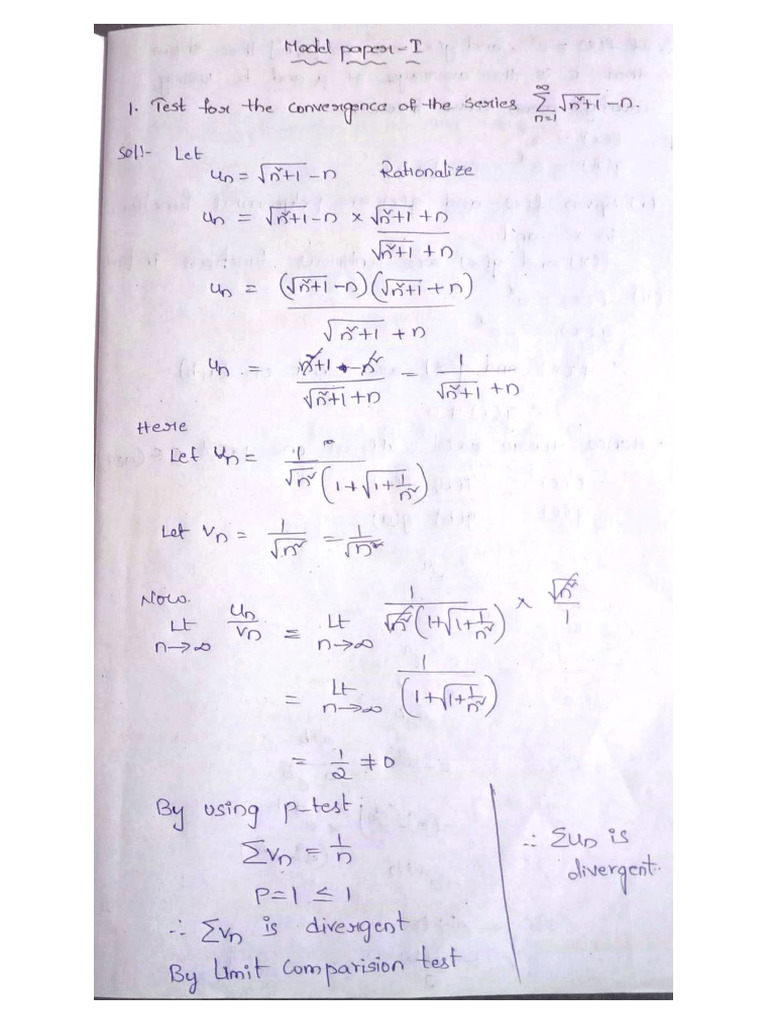 Model paper-I
1. Test for the convergence of the series ∑_{n=1}^{∞} √(n²+1) - n.
Sol!- Let
u_n = √(n²+1) - n Rationalize
u_n = √(n²+1) - n × (√(n²+1) + n)/(√(n²+1) + n)
u_n = (√(n²+1) - n)(√(n²+1) + n)/(√(n²+1) + n)
u_n = (n²+1 - n²)/(√(n²+1) + n) = 1/(√(n²+1) + n)
Here
Let u_n = 1/(√n² (1+√(1+1/n²)))
Let v_n = 1/√n² = 1/√n²
Now.
Lt_{n→∞} u_n/v_n = Lt_{n→∞} 1/(√n² (1+√(1+1/n²))) × √n²/1
= Lt_{n→∞} 1/(1+√(1+1/n²))
= 1/2 ≠ 0
By using p-test.
∑v_n = 1/n
P=1 ≤ 1
∴ ∑v_n is divergent
By Limit comparision test
∴ ∑u_n is
divergent.